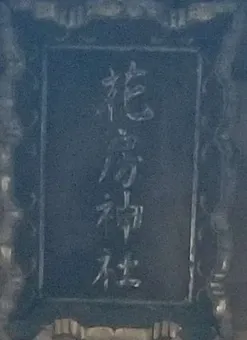 花房神社